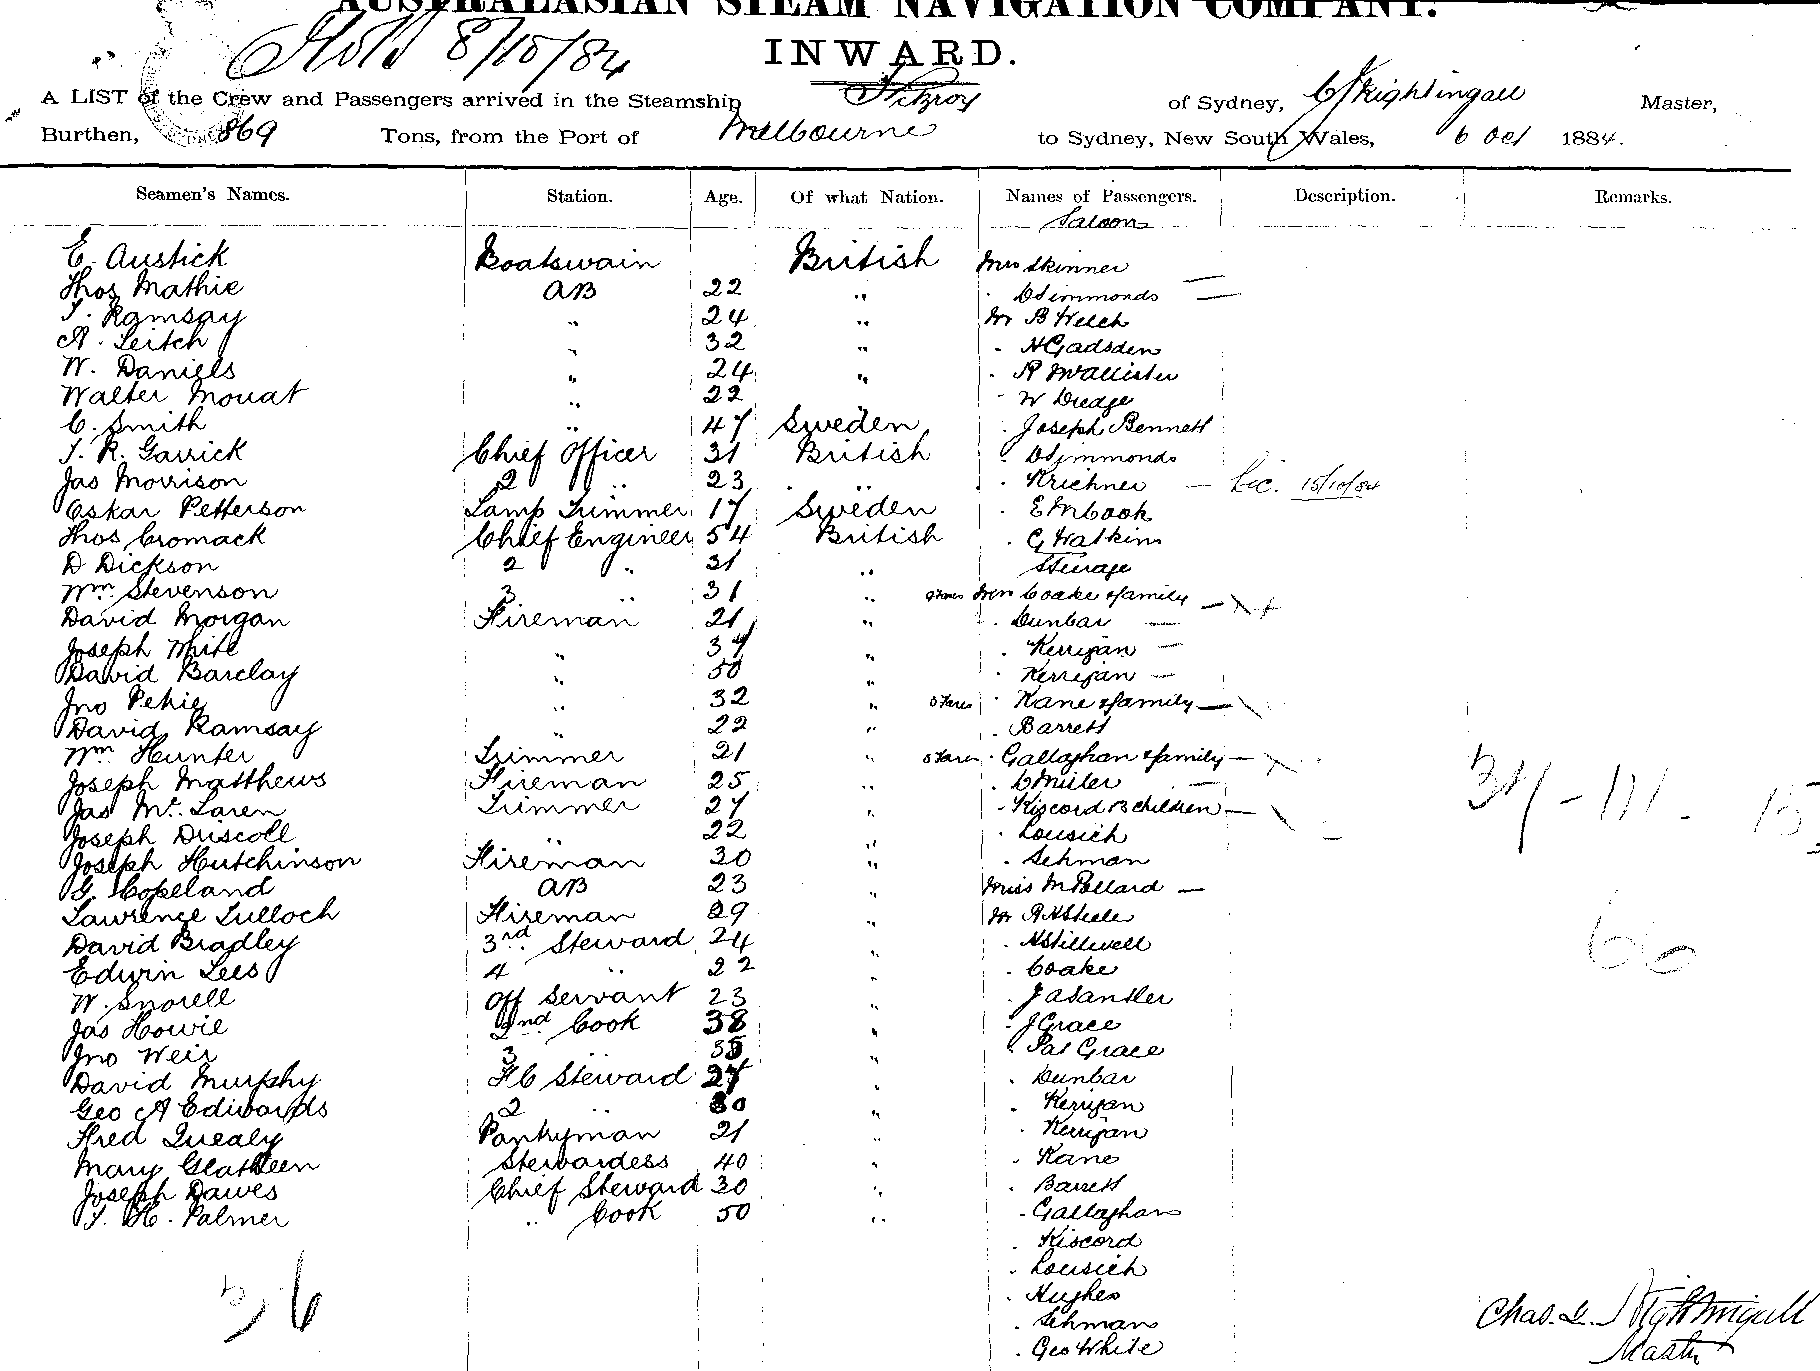 AUSTRALASIAN STEAM NAVIGATION COMPANY.
8/10/84
INWARD.
A LIST of the Crew and Passengers arrived in the Steamship Fitzroy of Sydney, C Nightingall Master,
Burthen, 869 Tons, from the Port of Melbourne to Sydney, New South Wales, 6 Oct 1884.
Seamen's Names. Station. Age. Of what Nation. Names of Passengers. Description. Remarks.
Saloon
E. Austick Boatswain British Mrs Skinner
Thos Mathie AB 22 " " Simmonds —
J. Ramsay " 24 " Mr B Welch
A. Leitch " 32 " " H Gadsden
W. Daniels " 24 " " R McAllister
Walter Mouat " 22 " " W Dredge
C. Smith " 47 Sweden " Joseph Bennett
J. R. Garrick Chief Officer 31 British " Simmonds
Jas Morrison 2 " 23 " " Krichner — Lic. 15/10/84
Oskar Petterson Lamp Trimmer 17 Sweden " E M Cook
Thos Cromack Chief Engineer 54 British " G Watkins
D Dickson 2 " 31 " Steerage
Wm Stevenson 3 " 31 " Mrs Coake & family —
David Morgan Fireman 21 " " Dunbar —
Joseph White " 37 " " Kerrigan —
David Barclay " 50 " " Kerrigan —
Jno Petrie " 32 " 3 Fares " Kane & family —
David Ramsay " 22 " " Barrett
Wm Hunter Trimmer 21 " 3 Fares " Gallaghan & family —
Joseph Matthews Fireman 25 " " C Miller —
Jas McLaren Trimmer 27 " " Kiscord 3 children —
Joseph Driscoll " 22 " " Lousich
Joseph Hutchinson Fireman 30 " " Sehman
G. Copeland AB 23 " Miss M Pollard —
Lawrence Tulloch Fireman 29 " Mr R H Steele
David Bradley 3rd Steward 24 " " H Stillwell
Edwin Lees 4 " 22 " " Coake
W. Snorell Off Servant 23 " " J A Santler
Jas Howie 2nd Cook 38 " " J Grace
Jno Weir 3 " 35 " " Pat Grace
David Murphy F C Steward 27 " " Dunbar
Geo A Edwards 2 " 30 " " Kerrigan
Fred Quealy Pantryman 21 " " Kerrigan
Mary Stewardess 40 " " Kane
Joseph Dawes Chief Steward 30 " " Barrett
J. H. Palmer " Cook 50 " " Gallaghan
" Kiscord
" Lousich
" Hughes
" Sehman
" Geo White
66
36
Chas. G. Nightingall
Master